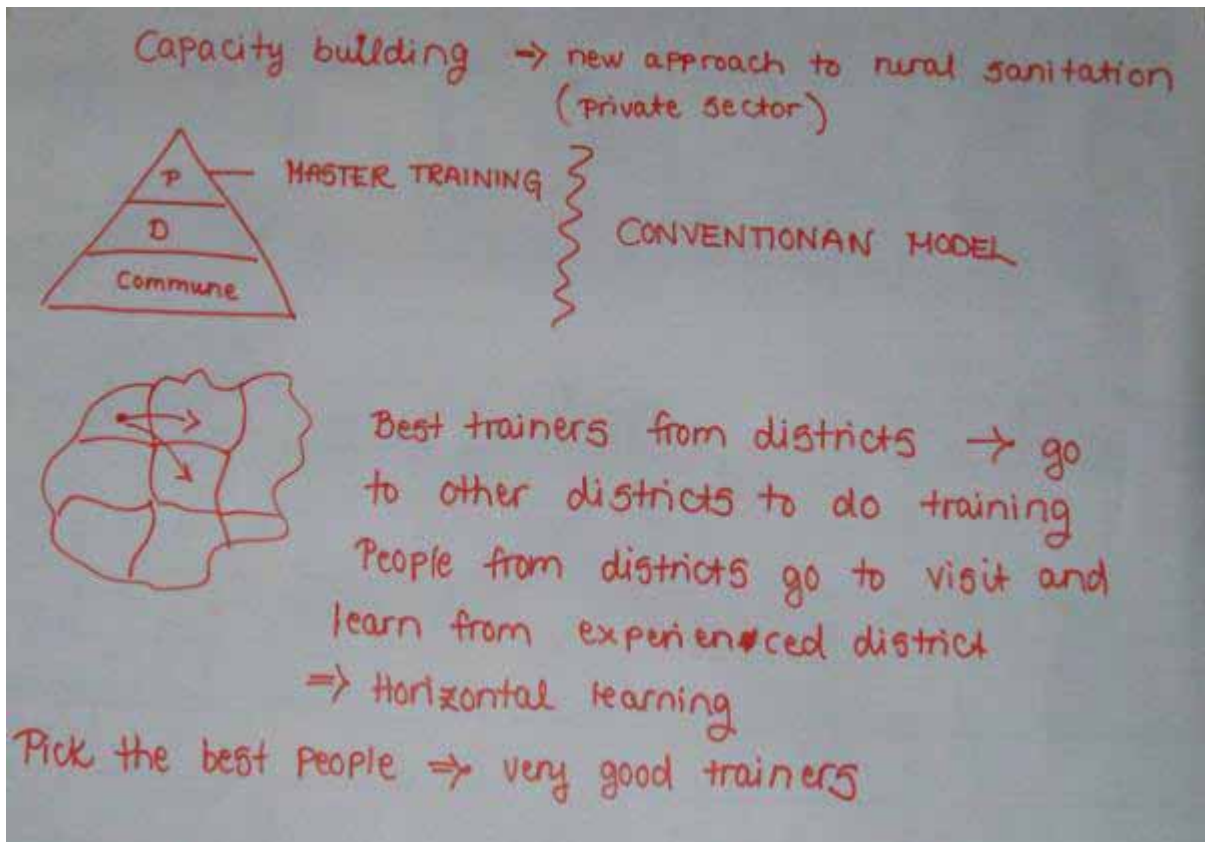 Capacity building → new approach to rural sanitation
(private sector)
P
MASTER TRAINING
D
Commune
CONVENTIONAN MODEL
Best trainers from districts → go
to other districts to do training
People from districts go to visit and
learn from experienced district
⇒ Horizontal learning
Pick the best people ⇒ very good trainers